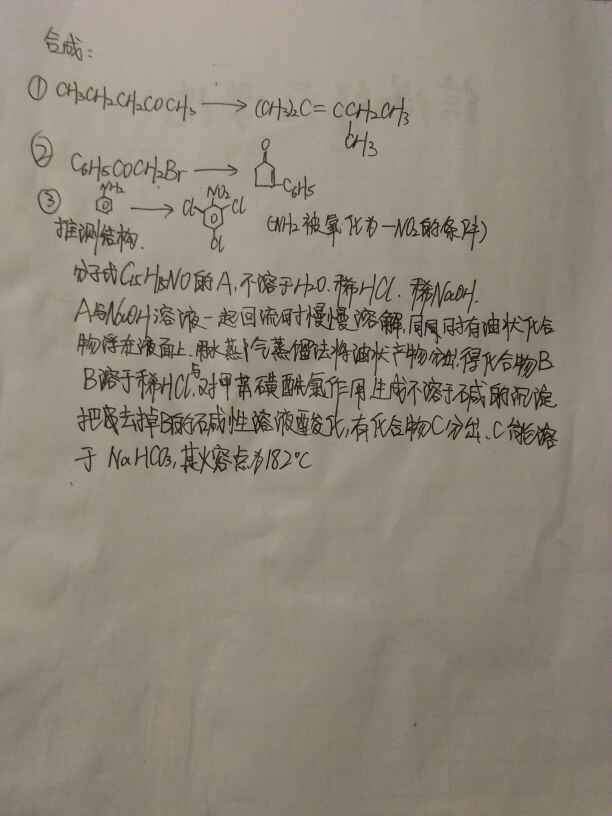 合成:
① CH3CH2CH2COCH3 → (CH3)2C = CCH2CH3
CH3
② C6H5COCH2Br → O C6H5
③ NH2 → NO2 Cl Cl Cl (NH2被氧化为-NO2的条件)
推测结构.
分子式C15H15NO的A,不溶于H2O.稀HCl.稀NaOH.
A与NaOH溶液一起回流时慢慢溶解,同时有油状化合
物浮在液面上.用水蒸气蒸馏法将油状产物分出.得化合物B
B溶于稀HCl,与对甲苯磺酰氯作用,生成不溶于碱的沉淀
把去掉B的碱性溶液酸化,有化合物C分出.C能溶
于NaHCO3,其熔点为182℃